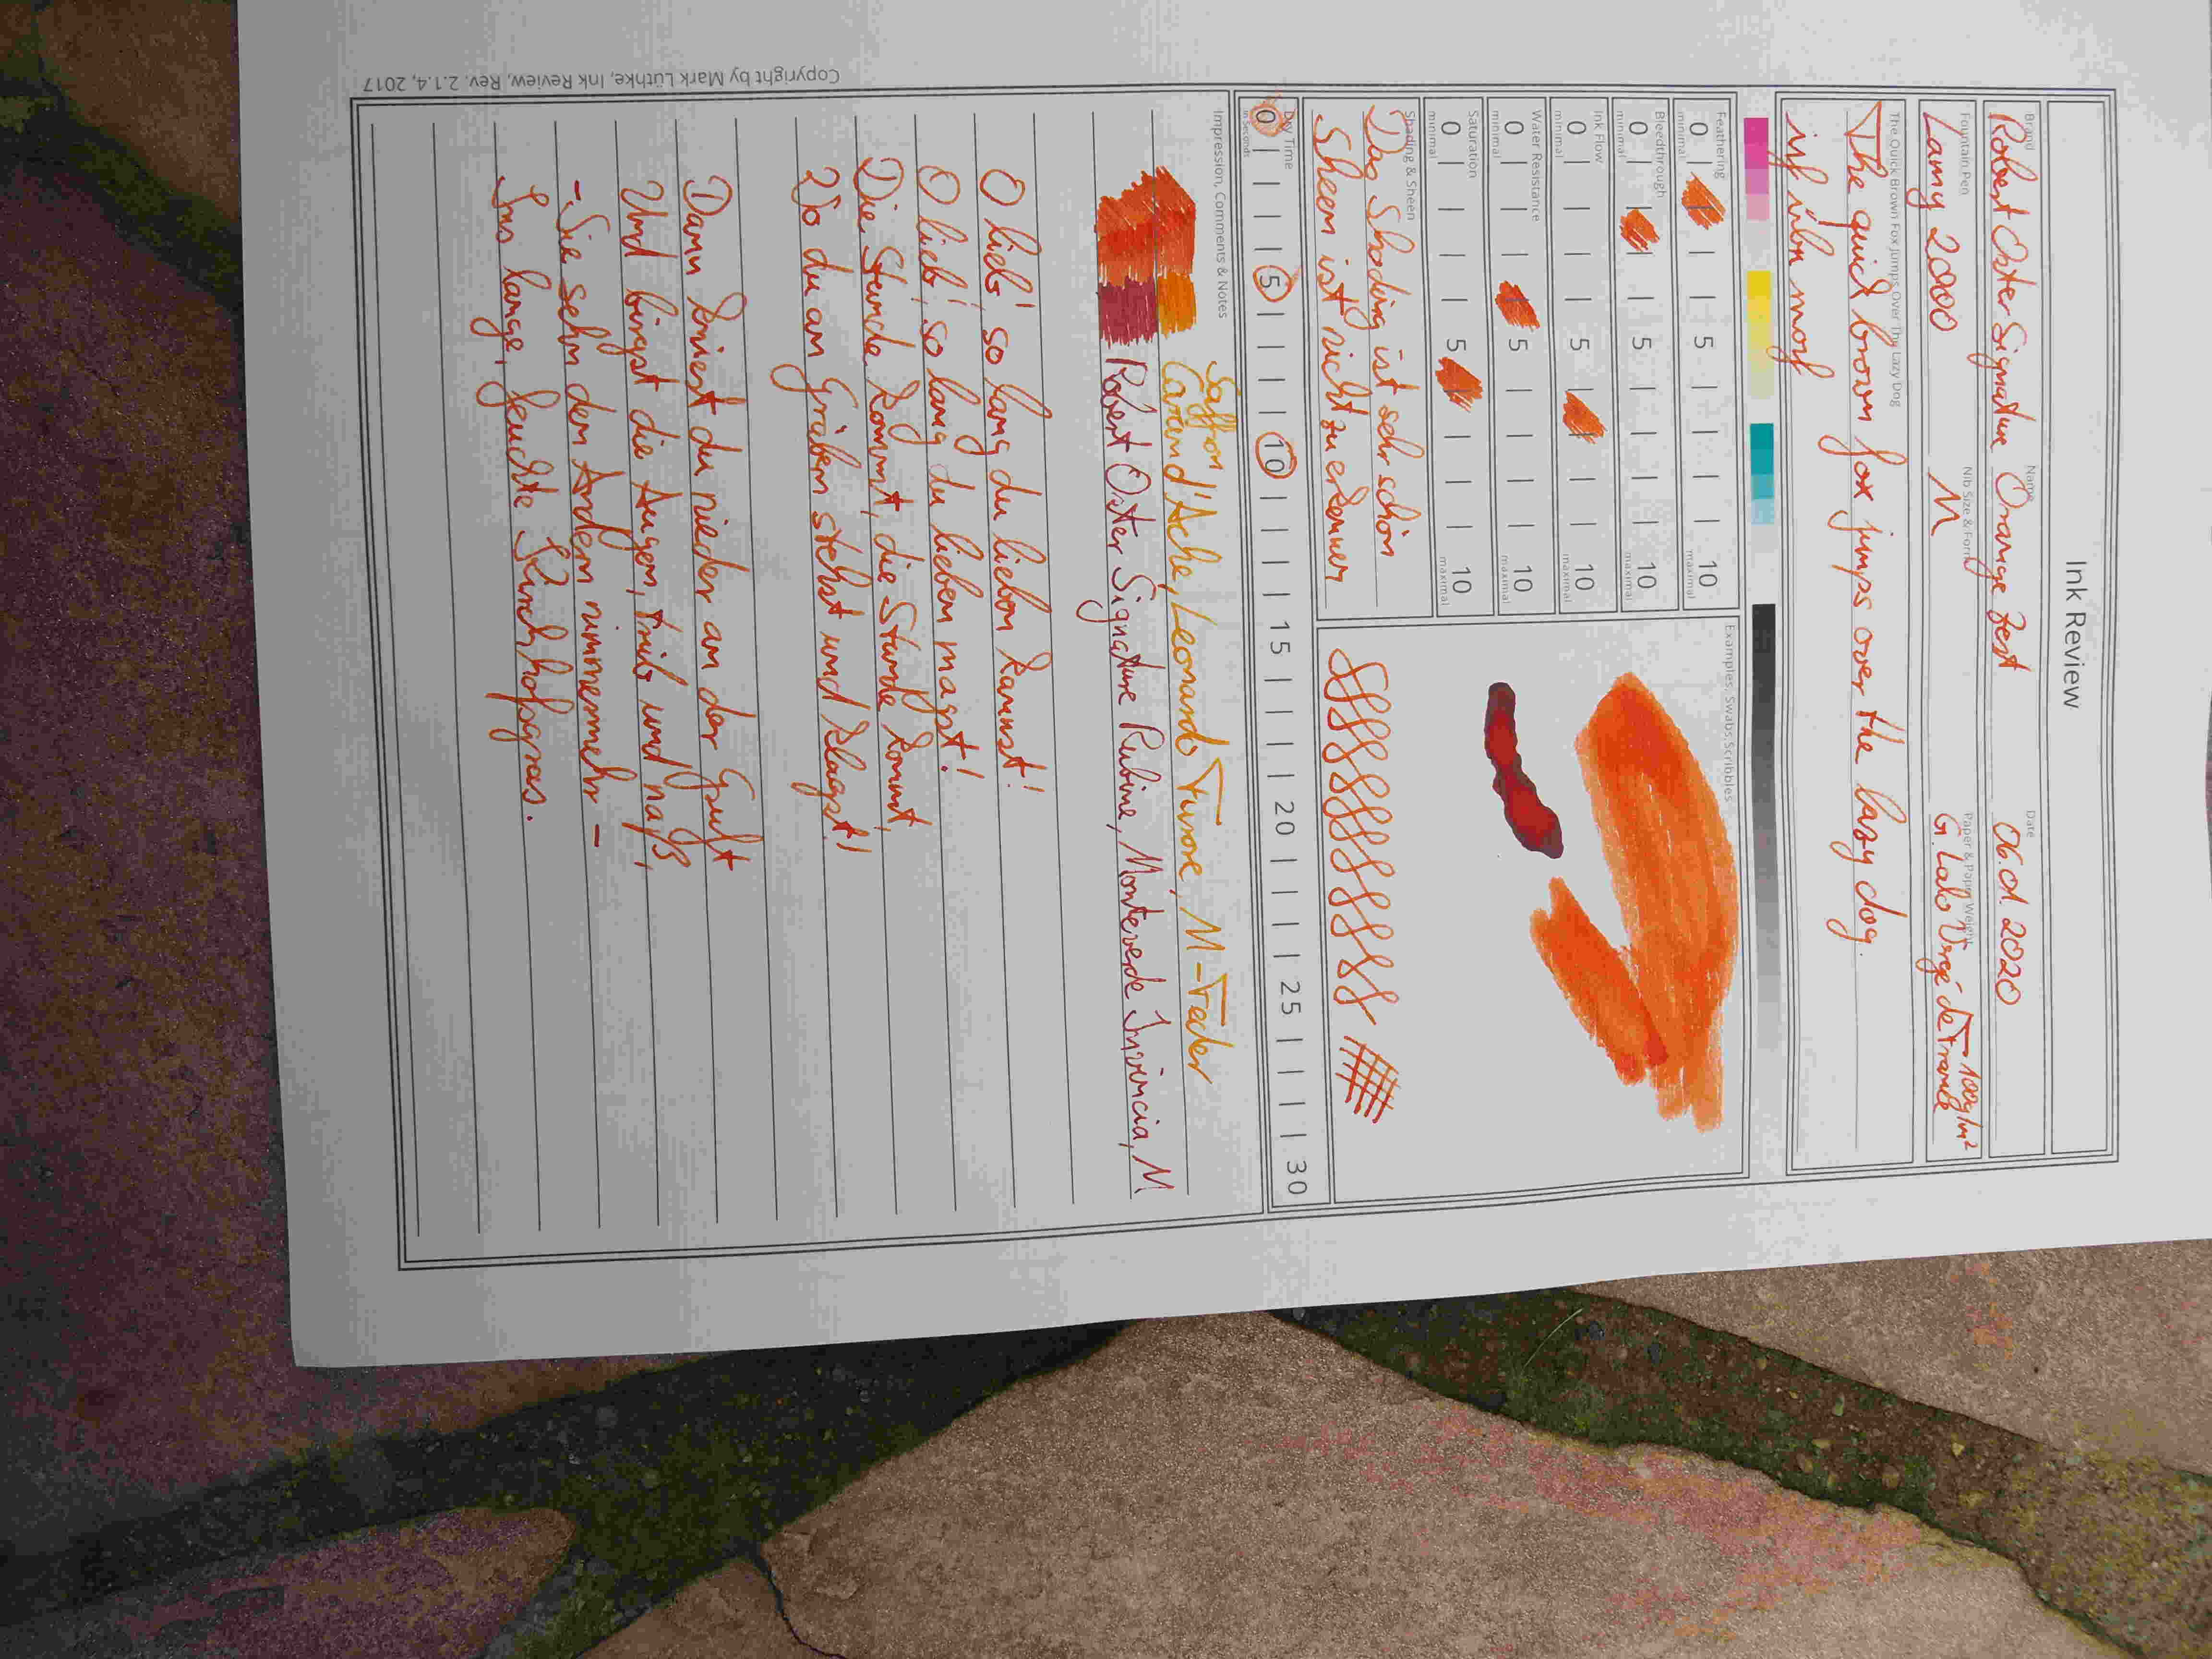 Ink Review
Brand Name Date
Robert Oster Signature Orange Zest 06.01.2020
Fountain Pen Nib Size & Form Paper & Paper Weight
Lamy 2000 M G. Lalo Vergé de France 100g/m²
The Quick Brown Fox Jumps Over The Lazy Dog
The quick brown fox jumps over the lazy dog.
ich übe noch
Feathering
0 5 10
minimal maximal
Bleedthrough
0 5 10
minimal maximal
Ink Flow
0 5 10
minimal maximal
Water Resistance
0 5 10
minimal maximal
Saturation
0 5 10
minimal maximal
Shading & Sheen
Das Shading ist sehr schön
Sheen ist nicht zu erkennen
Examples, Swabs, Scribbles
Dry Time
0 5 10 15 20 25 30
in Seconds
Impression, Comments & Notes
Saffron
Caran d'Ache, Leonardo Furore, M-Feder
Robert Oster Signature Rubine, Monteverde Invincia, M
O lieb', so lang du lieben kannst!
O lieb', so lang du lieben magst!
Die Stunde kommt, die Stunde kommt,
Wo du an Gräbern stehst und klagst!
Dann kniest du nieder an der Gruft
Und birgst die Augen, trüb und naß,
- Sie sehn den Andern nimmermehr -
Ins lange, feuchte Kirchhofsgras.
Copyright by Mark Lüthke, Ink Review, Rev. 2.1.4, 2017